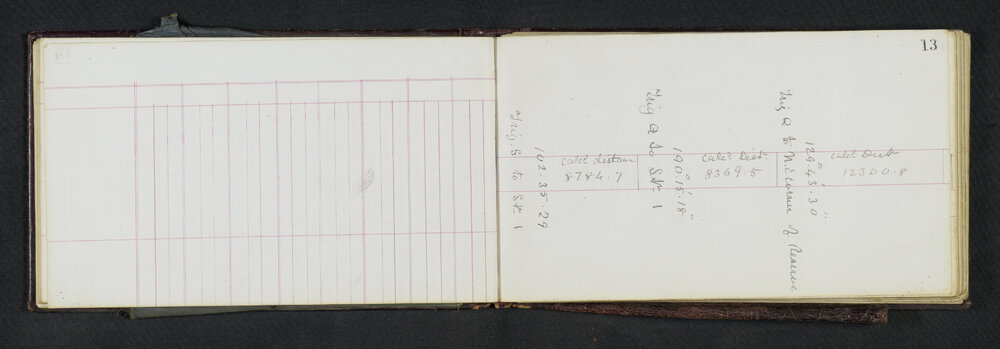 13
Trig. S to Stn. 1
102.35.29
Calcd Distance
8784.7
Trig Q to Stn. 1
190°.15'.18"
Calcd Distce
8369.5
Trig Q to N.E. corner of Reserve
124°.43'.30"
Calcd Distce
12300.8